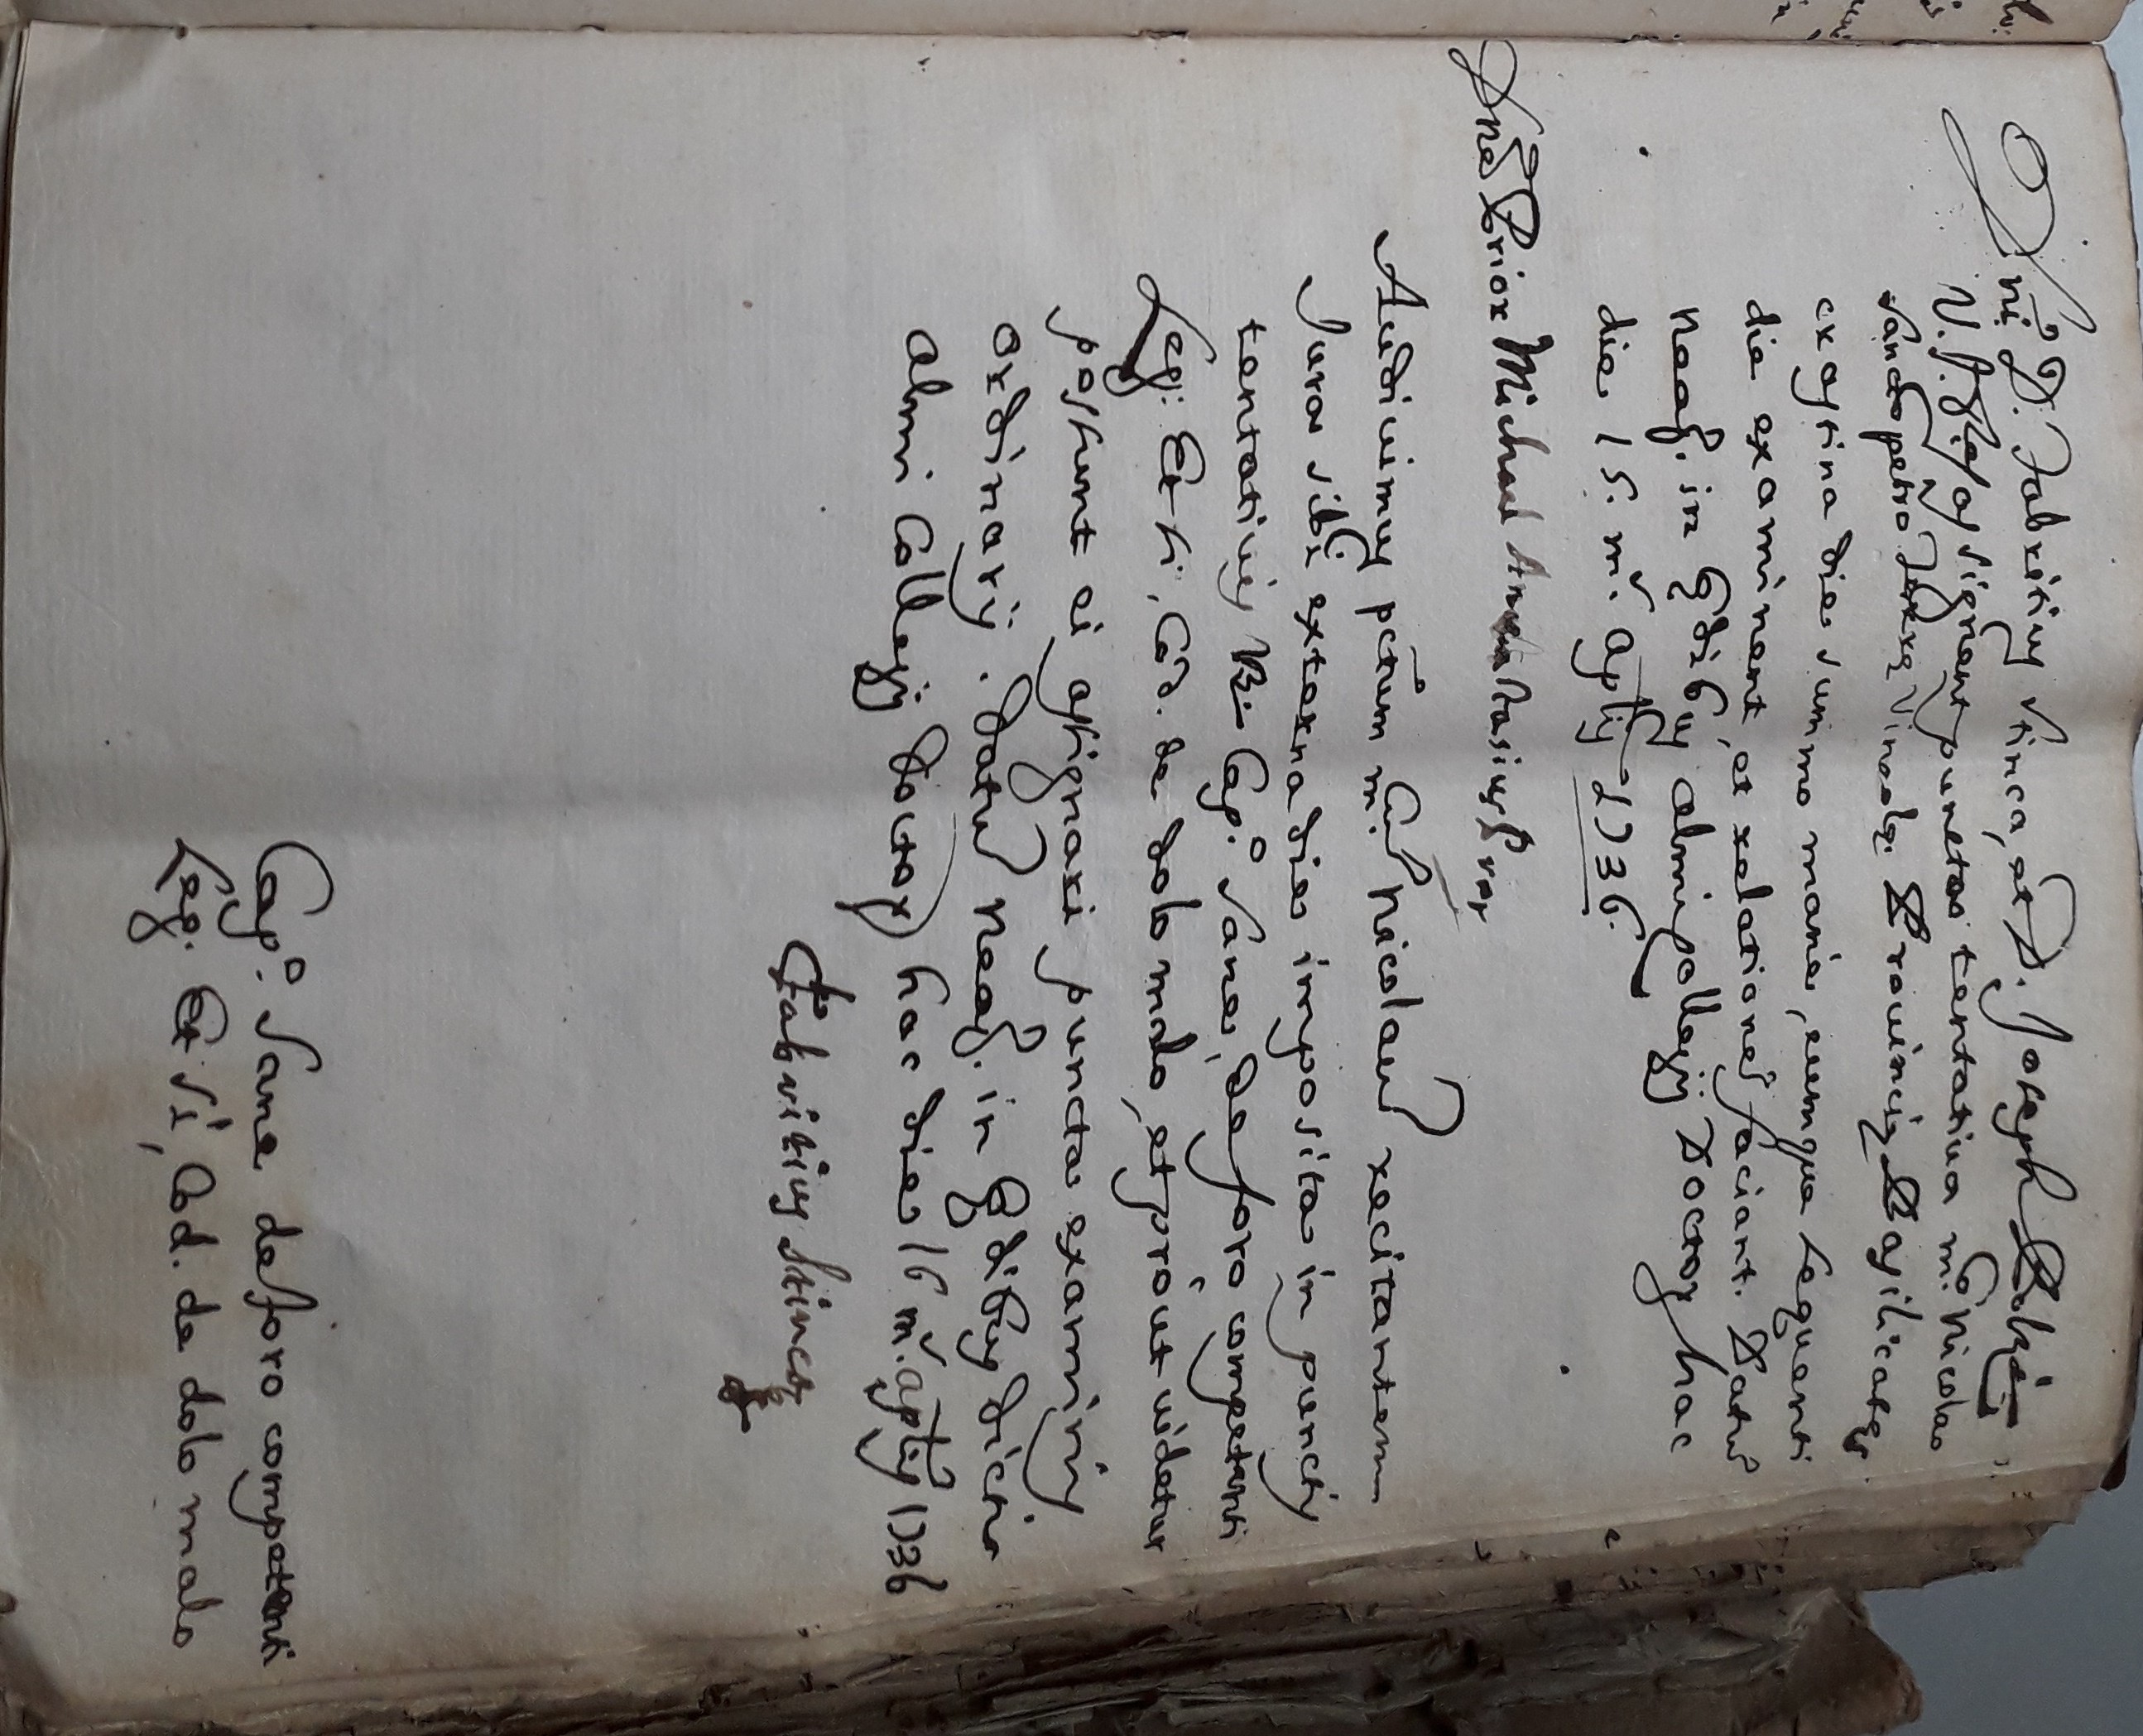 Dn̄i D. Fabritius Stinca, et D. Joseph
V.J.D. assignant puncta tentativa m.co Nicolao
Sanctopetro Terræ Vineolæ Provinciæ Basilicatæ
crastina die summo mane, eumque sequenti
die examinent, et relationes faciant. Datū
Neap. in ædibus almi Collegij Doctorū hac
die 15. m. aplis 1736.
Dne Prior Michael Anastasius
Audivimus p̄ctum m.cum Nicolaū recitantem
Jura sibi externa die imposita in punctis
tentativis Cap.o Sane, de foro competenti
Leg: Et si, Cod. de dolo malo, et prout videtur
possunt ei assignari puncta examinis
ordinarij. Datū Neap. in ædibus dicti
almi Collegij Doctorū hac die 16 m. aplis 1736
Fabritius Stinca
Cap.o Sane de foro competenti
Leg. Et si, Cod. de dolo malo